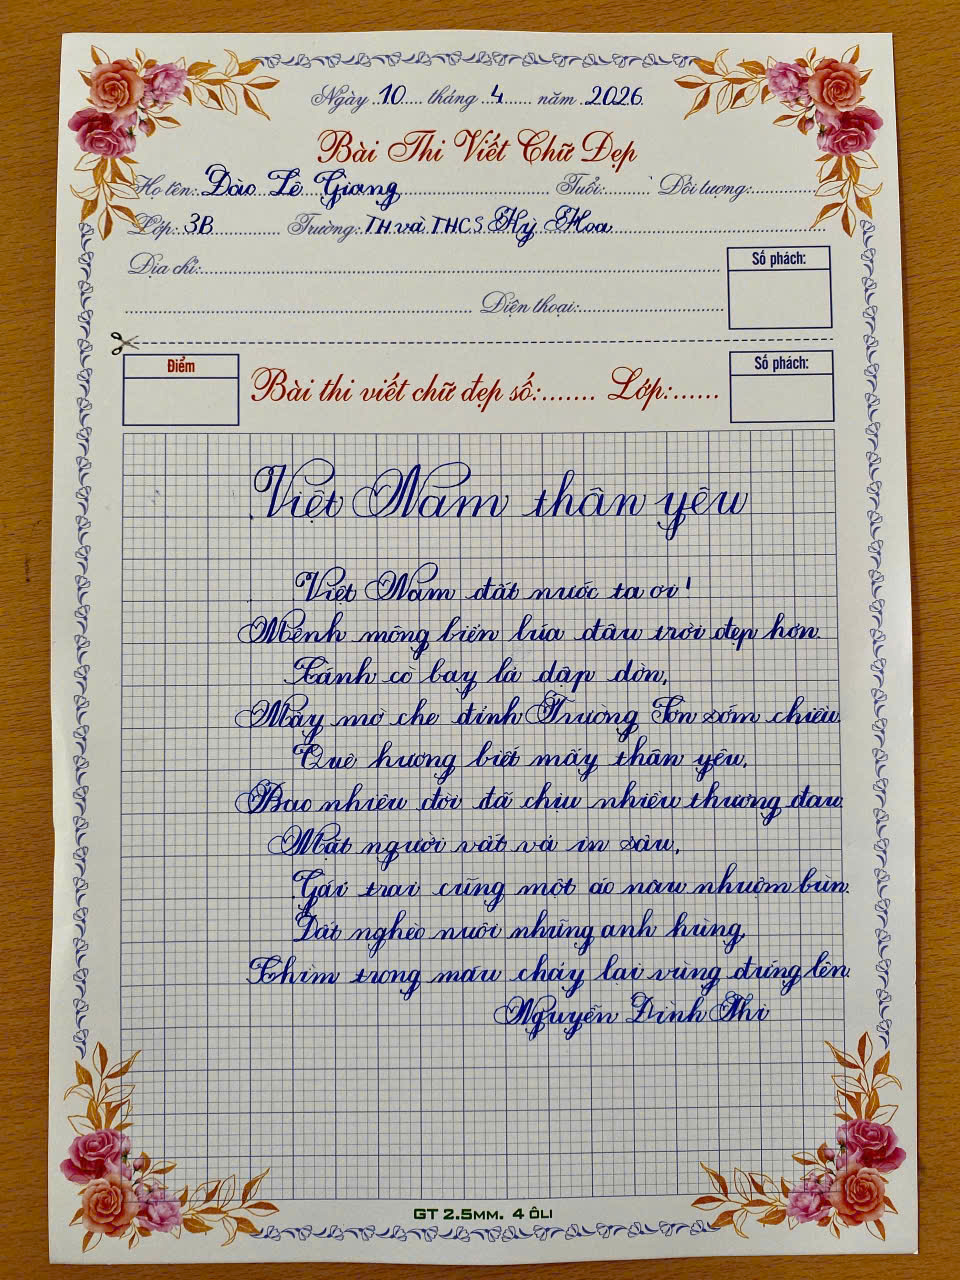 Ngày 10 tháng 4 năm 2026
Bài Thi Viết Chữ Đẹp
Họ tên: Đào Lê Giang Tuổi: Đối tượng:
Lớp: 3B Trường: TH và THCS Kỳ Hoa
Địa chỉ:
Số phách:
Điện thoại:
Điểm
Bài thi viết chữ đẹp số: Lớp:
Số phách:
Việt Nam thân yêu
Việt Nam đất nước ta ơi!
Mênh mông biển lúa đâu trời đẹp hơn.
Cánh cò bay lả dập dờn,
Mây mờ che đỉnh Trường Sơn sớm chiều.
Quê hương biết mấy thân yêu,
Bao nhiêu đời đã chịu nhiều thương đau.
Mặt người vất vả in sâu,
Gái trai cũng một áo nâu nhuộm bùn.
Đất nghèo nuôi những anh hùng,
Chìm trong máu chảy lại vùng đứng lên.
Nguyễn Đình Thi
GT 2.5MM. 4 ÔLI